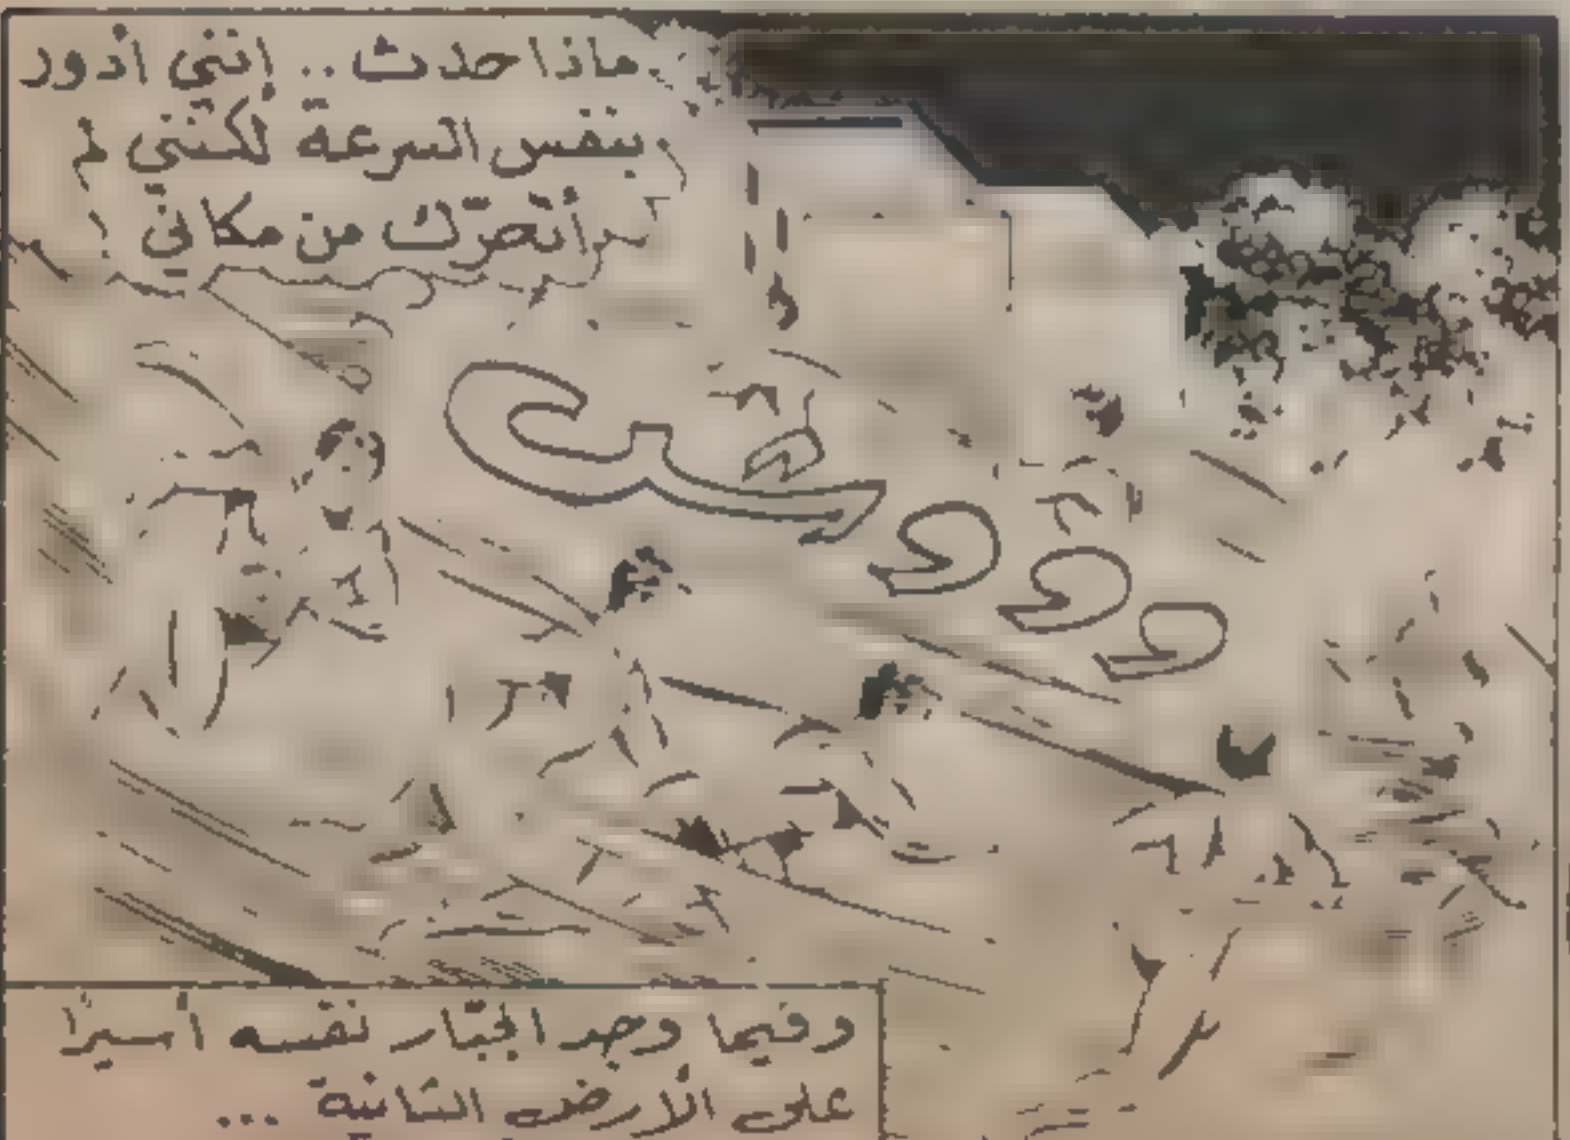 ماذا حدث .. إنني أدور
بنفس السرعة لكنّني لم
أتحرّك من مكاني !
وفيما وجد الجبّار نفسه أسيرًا
على الأرض الثانية ...